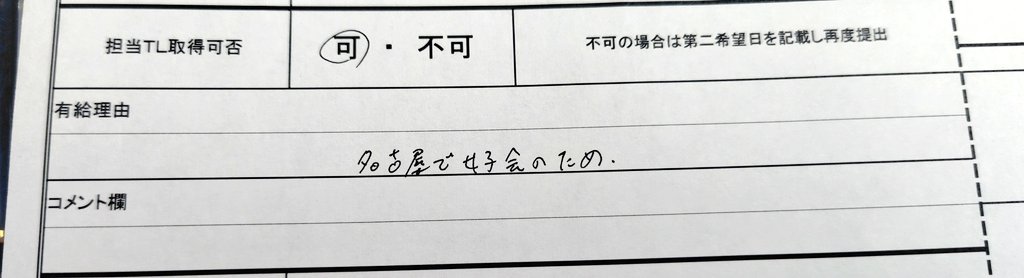 担当TL取得可否 可・不可 不可の場合は第二希望日を記載し再度提出
有給理由
名古屋で女子会のため.
コメント欄